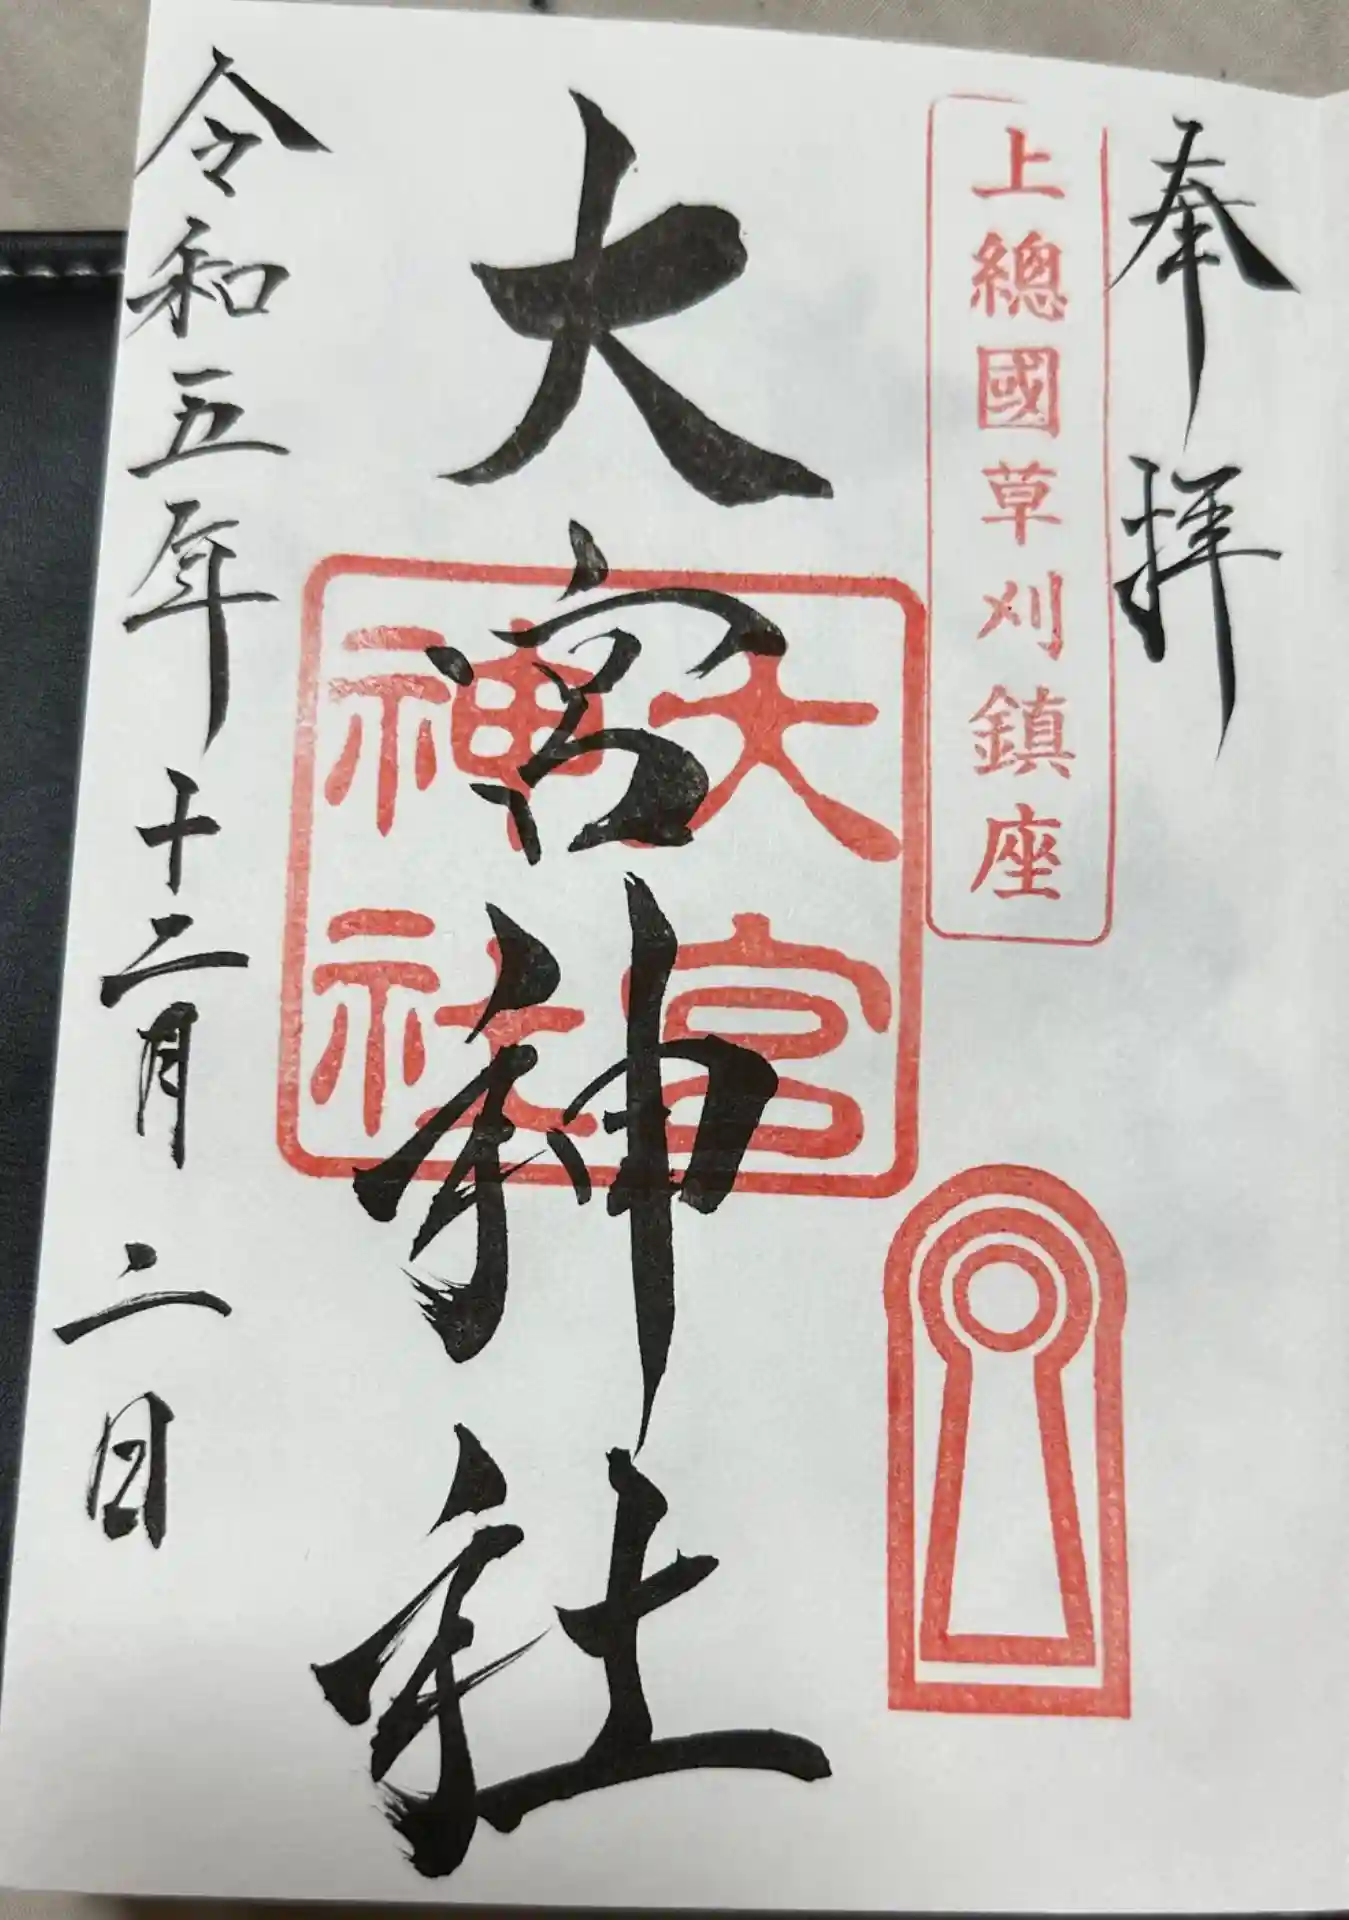 奉拝
上總國草刈鎮座
大宮神社
大宮
神社
令和五年十二月二日